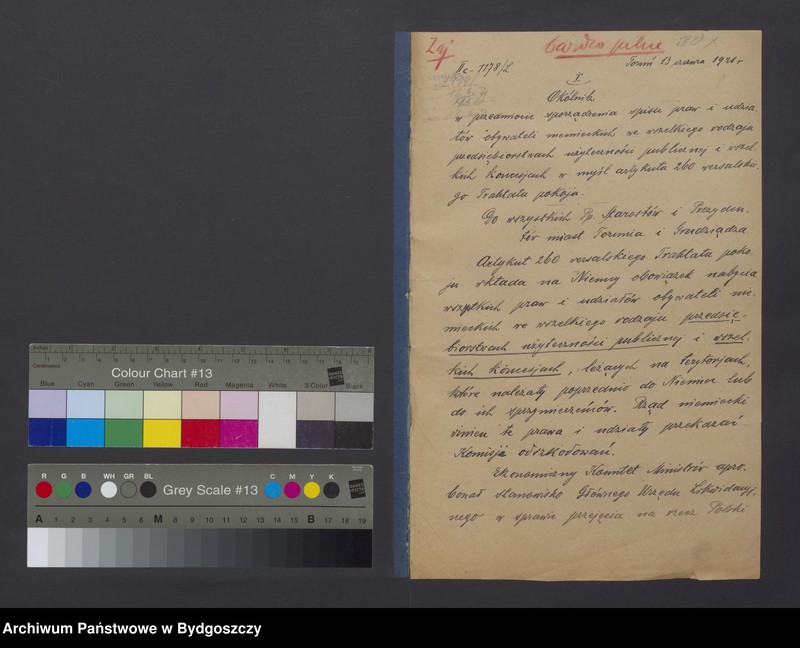 Zaj
bardzo pilne
IIc-1178/L
Toruń 13 czerwca 1921 r
I
Okólnik
w przedmiocie sporządzenia spisu praw i udzia-
łów obywateli niemieckich we wszelkiego rodzaju
przedsiębiorstwach użyteczności publicznej i wszel
kich koncesjach w myśl artykułu 260 wersalskie
go Traktatu pokoju.
Do wszystkich Pp. Starostów i Prezyden-
tów miast Torunia i Grudziądza
Artykuł 260 wersalskiego Traktatu poko
ju wkłada na Niemcy obowiązek nabycia
wszystkich praw i udziałów obywateli nie-
mieckich we wszelkiego rodzaju przedsię-
biorstwach użyteczności publicznej i wszel-
kich koncesjach, leżących na terytorjach,
które należały poprzednio do Niemiec lub
do ich sprzymierzeńców. Rząd niemiecki
winien te prawa i udziały przekazać
Komisji odszkodowań.
Ekonomiczny Komitet Ministrów apro-
bował stanowisko Głównego Urzędu Likwidacyj-
nego w sprawie przejęcia na rzecz Polski
Inches
Centimetres
Colour Chart #13
Blue Cyan Green Yellow Red Magenta White 3/Color Black
R G B WH GR BL Grey Scale #13 C M Y K
A 1 2 3 4 5 6 M 8 9 10 11 12 13 14 15 B 17 18 19
Archiwum Państwowe w Bydgoszczy